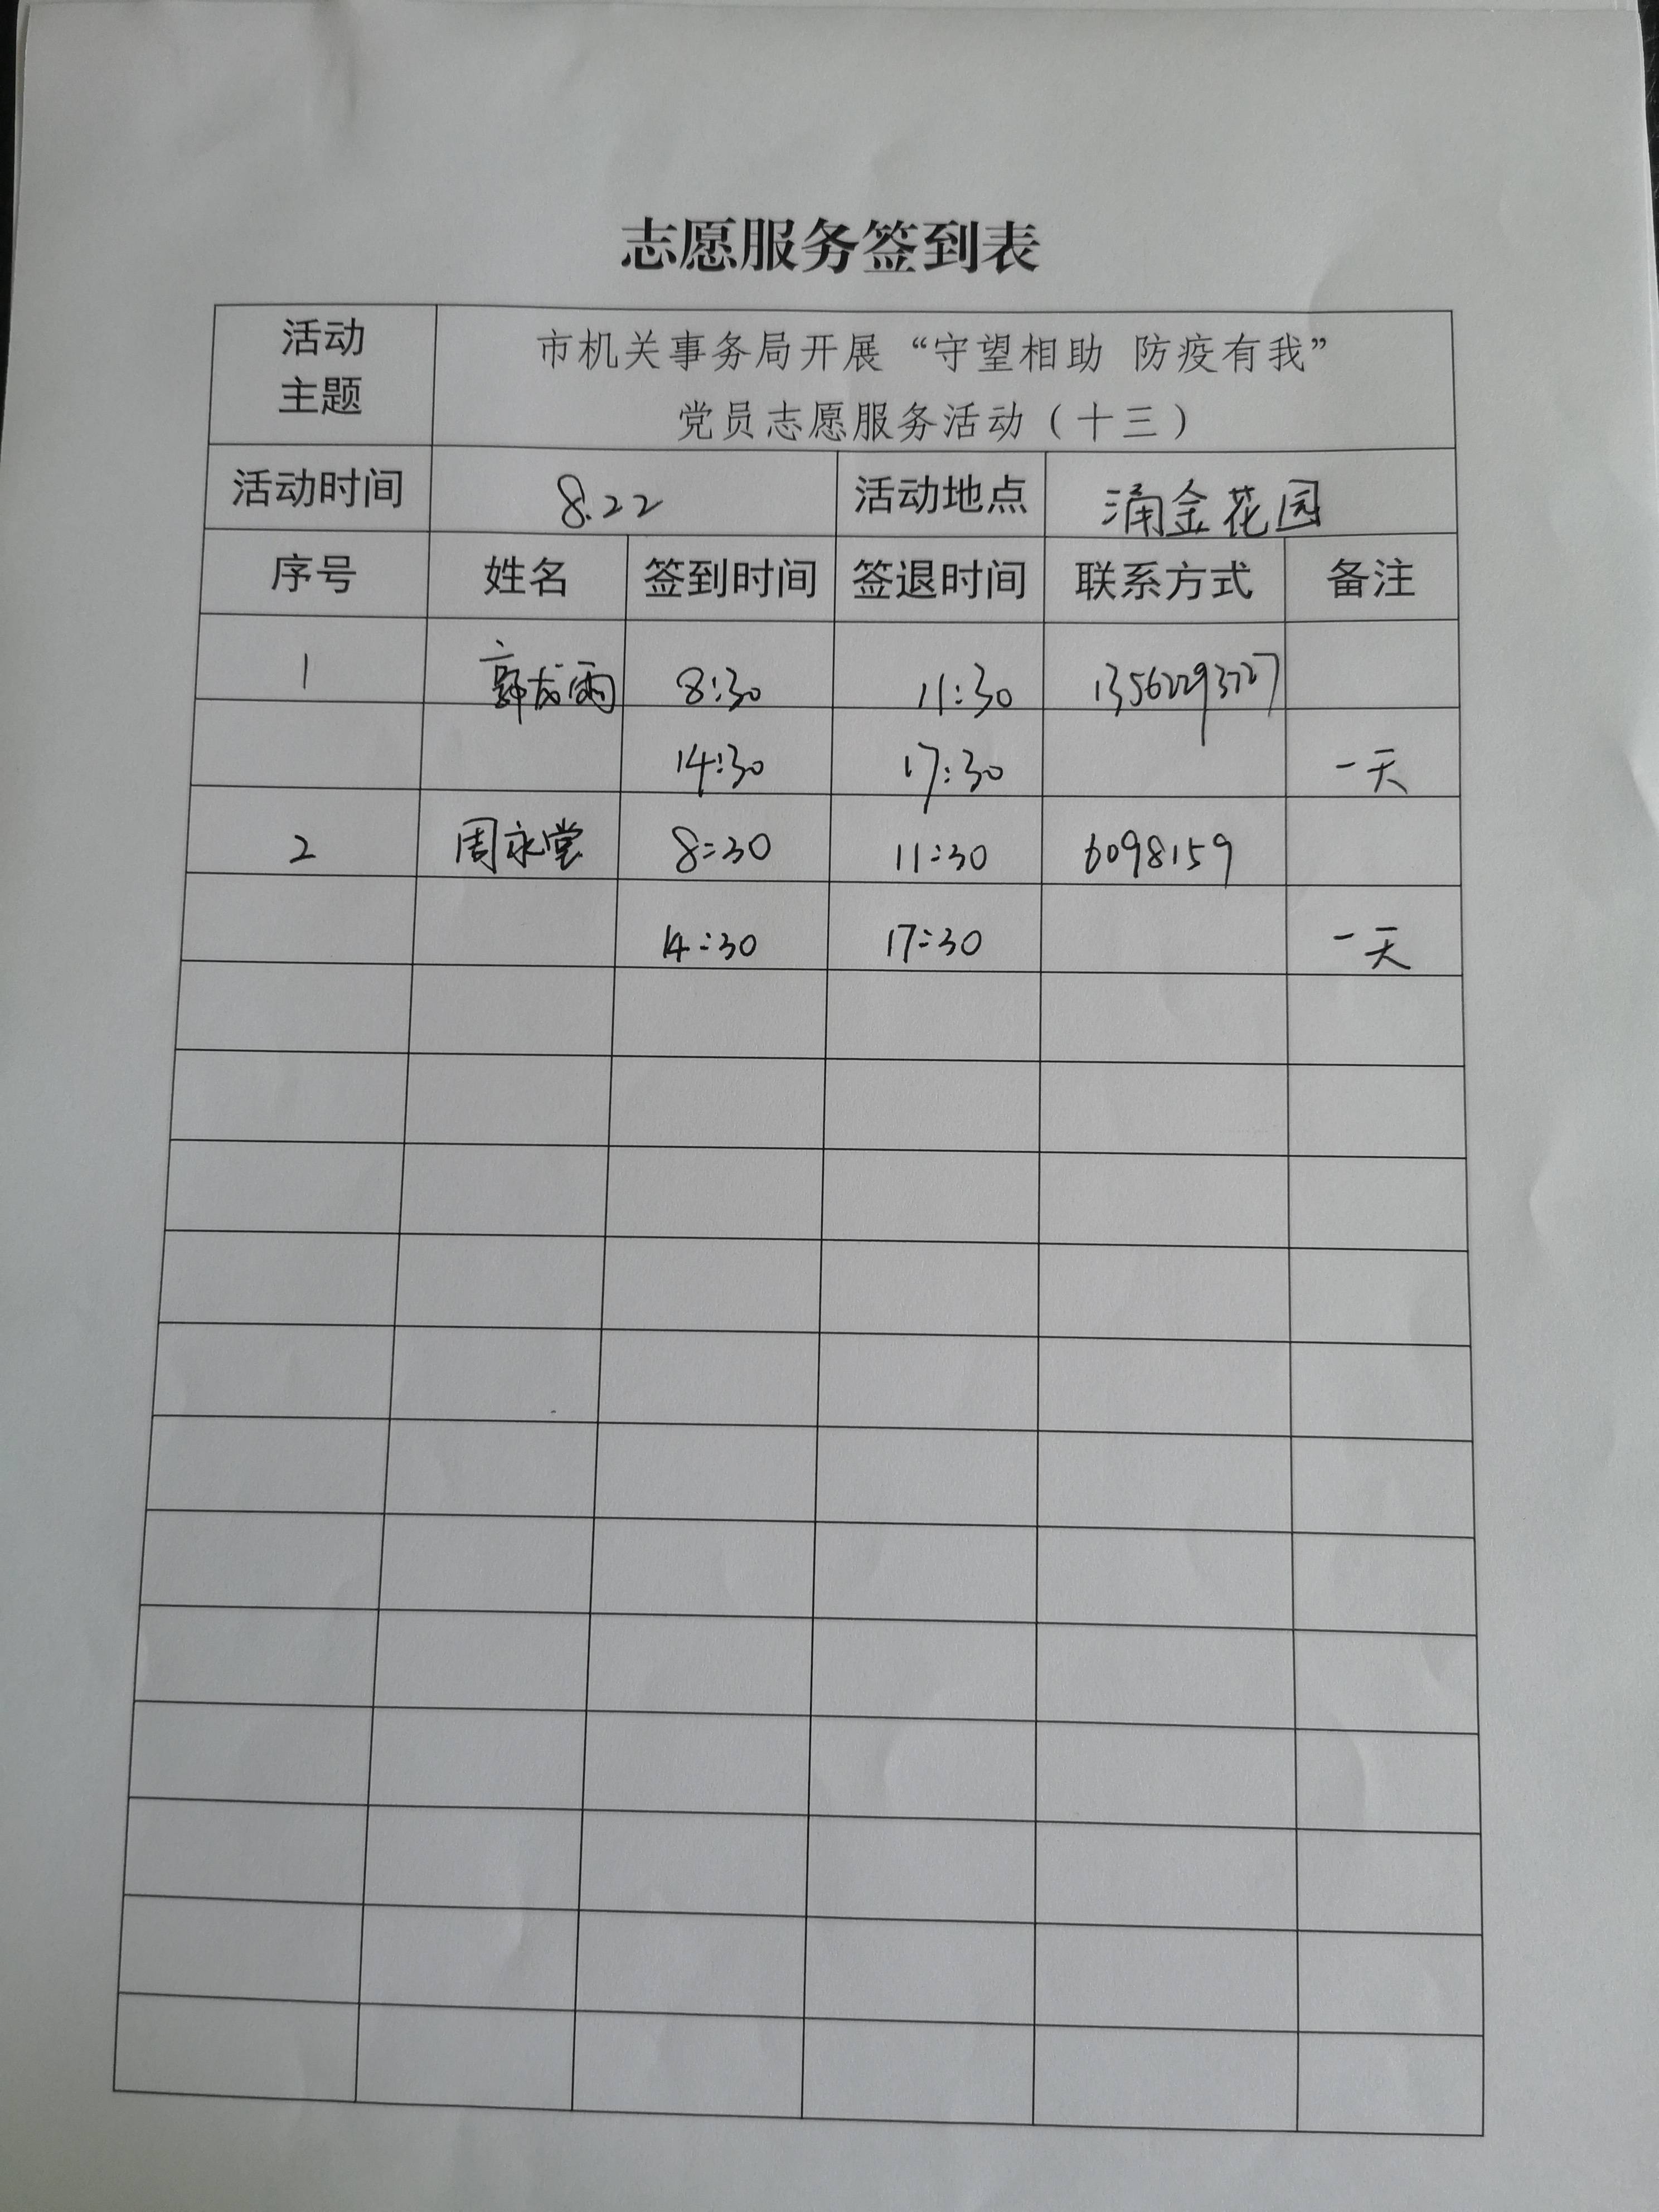 志愿服务签到表
活动
主题
市机关事务局开展“守望相助 防疫有我”
党员志愿服务活动（十三）
活动时间 8.22 活动地点 涌金花园
序号 姓名 签到时间 签退时间 联系方式 备注
1 8:30 11:30 13562293727
14:30 17:30 一天
2 周永堂 8:30 11:30 6098159
14:30 17:30 一天